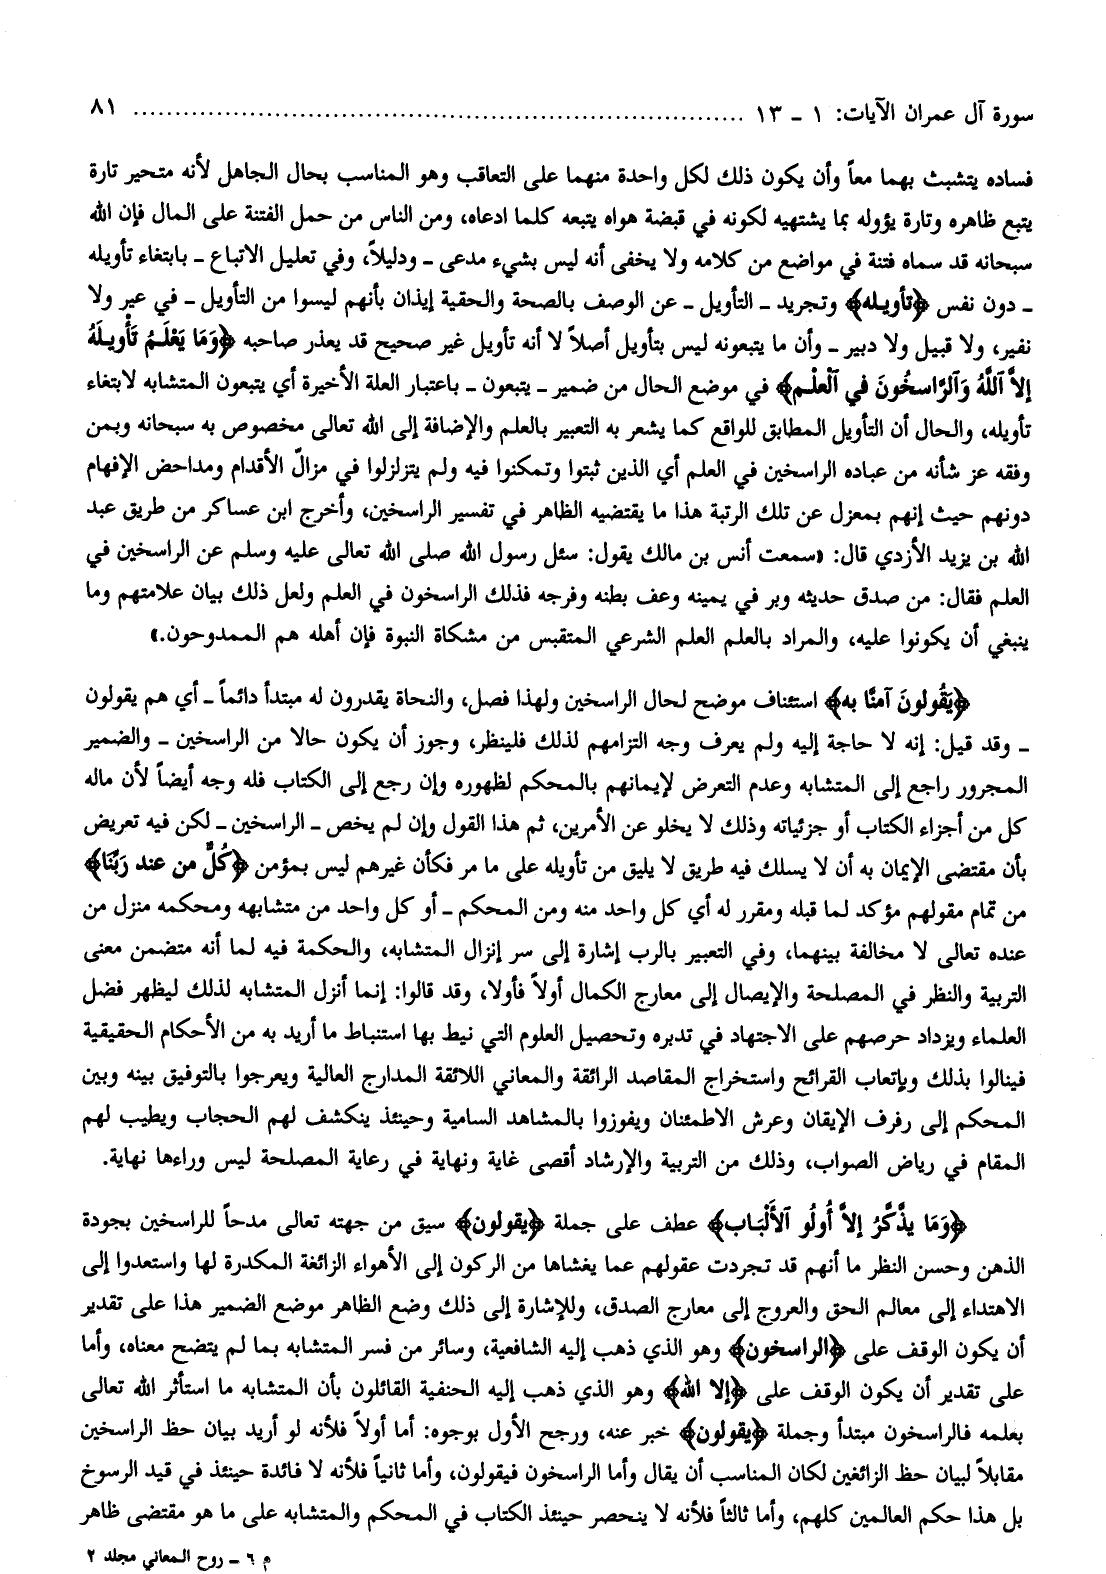 سورة آل عمران الآيات: ١ ـ ١٣ ........................................................................ ٨١
فساده يتشبث بهما معاً وأن يكون ذلك لكل واحدة منهما على التعاقب وهو المناسب بحال الجاهل لأنه متحير تارة
يتبع ظاهره وتارة يؤوله بما يشتهيه لكونه في قبضة هواه يتبعه كلما ادعاه، ومن الناس من حمل الفتنة على المال فإن الله
سبحانه قد سماه فتنة في مواضع من كلامه ولا يخفى أنه ليس بشيء مدعى ـ ودليلاً، وفي تعليل الاتباع ـ بابتغاء تأويله
ـ دون نفس ﴿تأويله﴾ وتجريد ـ التأويل ـ عن الوصف بالصحة والحقية إيذان بأنهم ليسوا من التأويل ـ في عير ولا
نفير، ولا قبيل ولا دبير ـ وأن ما يتبعونه ليس بتأويل أصلاً لا أنه تأويل غير صحيح قد يعذر صاحبه ﴿وَمَا يَعْلَمُ تَأْوِيلَهُ
إلاَّ ٱللَّهُ وَٱلرَّاسخُونَ في ٱلْعلْم﴾ في موضع الحال من ضمير ـ يتبعون ـ باعتبار العلة الأخيرة أي يتبعون المتشابه لابتغاء
تأويله، والحال أن التأويل المطابق للواقع كما يشعر به التعبير بالعلم والإضافة إلى الله تعالى مخصوص به سبحانه وبمن
وفقه عز شأنه من عباده الراسخين في العلم أي الذين ثبتوا وتمكنوا فيه ولم يتزلزلوا في مزالّ الأقدام ومداحض الإفهام
دونهم حيث إنهم بمعزل عن تلك الرتبة هذا ما يقتضيه الظاهر في تفسير الراسخين، وأخرج ابن عساكر من طريق عبد
الله بن يزيد الأزدي قال: «سمعت أنس بن مالك يقول: سئل رسول الله صلى الله تعالى عليه وسلم عن الراسخين في
العلم فقال: من صدق حديثه وبر في يمينه وعف بطنه وفرجه فذلك الراسخون في العلم ولعل ذلك بيان علامتهم وما
ينبغي أن يكونوا عليه، والمراد بالعلم العلم الشرعي المتقبس من مشكاة النبوة فإن أهله هم الممدوحون.»
﴿يَقُولونَ آمنَّا به﴾ استئناف موضح لحال الراسخين ولهذا فصل، والنحاة يقدرون له مبتدأ دائماً ـ أي هم يقولون
ـ وقد قيل: إنه لا حاجة إليه ولم يعرف وجه التزامهم لذلك فلينظر، وجوز أن يكون حالا من الراسخين ـ والضمير
المجرور راجع إلى المتشابه وعدم التعرض لإيمانهم بالمحكم لظهوره وإن رجع إلى الكتاب فله وجه أيضاً لأن ماله
كل من أجزاء الكتاب أو جزئياته وذلك لا يخلو عن الأمرين، ثم هذا القول وإن لم يخص ـ الراسخين ـ لكن فيه تعريض
بأن مقتضى الإيمان به أن لا يسلك فيه طريق لا يليق من تأويله على ما مر فكأن غيرهم ليس بمؤمن ﴿كُلٌّ من عند رَبِّنَا﴾
من تمام مقولهم مؤكد لما قبله ومقرر له أي كل واحد منه ومن المحكم ـ أو كل واحد من متشابهه ومحكمه منزل من
عنده تعالى لا مخالفة بينهما، وفي التعبير بالرب إشارة إلى سر إنزال المتشابه، والحكمة فيه لما أنه متضمن معنى
التربية والنظر في المصلحة والإيصال إلى معارج الكمال أولاً فأولا، وقد قالوا: إنما أنزل المتشابه لذلك ليظهر فضل
العلماء ويزداد حرصهم على الاجتهاد في تدبره وتحصيل العلوم التي نيط بها استنباط ما أريد به من الأحكام الحقيقية
فينالوا بذلك وبإتعاب القرائح واستخراج المقاصد الرائقة والمعاني اللائقة المدارج العالية ويعرجوا بالتوفيق بينه وبين
المحكم إلى رفرف الإيقان وعرش الاطمئنان ويفوزوا بالمشاهد السامية وحينئذ ينكشف لهم الحجاب ويطيب لهم
المقام في رياض الصواب، وذلك من التربية والإرشاد أقصى غاية ونهاية في رعاية المصلحة ليس وراءها نهاية.
﴿وَمَا يذَّكَّرُ إلاَّ أُولُو ٱلأَلْبَاب﴾ عطف على جملة ﴿يقولون﴾ سيق من جهته تعالى مدحاً للراسخين بجودة
الذهن وحسن النظر ما أنهم قد تجردت عقولهم عما يغشاها من الركون إلى الأهواء الزائغة المكدرة لها واستعدوا إلى
الاهتداء إلى معالم الحق والعروج إلى معارج الصدق، وللإشارة إلى ذلك وضع الظاهر موضع الضمير هذا على تقدير
أن يكون الوقف على ﴿الراسخون﴾ وهو الذي ذهب إليه الشافعية، وسائر من فسر المتشابه بما لم يتضح معناه، وأما
على تقدير أن يكون الوقف على ﴿إلا الله﴾ وهو الذي ذهب إليه الحنفية القائلون بأن المتشابه ما استأثر الله تعالى
بعلمه فالراسخون مبتدأ وجملة ﴿يقولون﴾ خبر عنه، ورجح الأول بوجوه: أما أولاً فلأنه لو أريد بيان حظ الراسخين
مقابلاً لبيان حظ الزائغين لكان المناسب أن يقال وأما الراسخون فيقولون، وأما ثانياً فلأنه لا فائدة حينئذ في قيد الرسوخ
بل هذا حكم العالمين كلهم، وأما ثالثاً فلأنه لا ينحصر حينئذ الكتاب في المحكم والمتشابه على ما هو مقتضى ظاهر
م ٦ ـ روح المعاني مجلد ٢